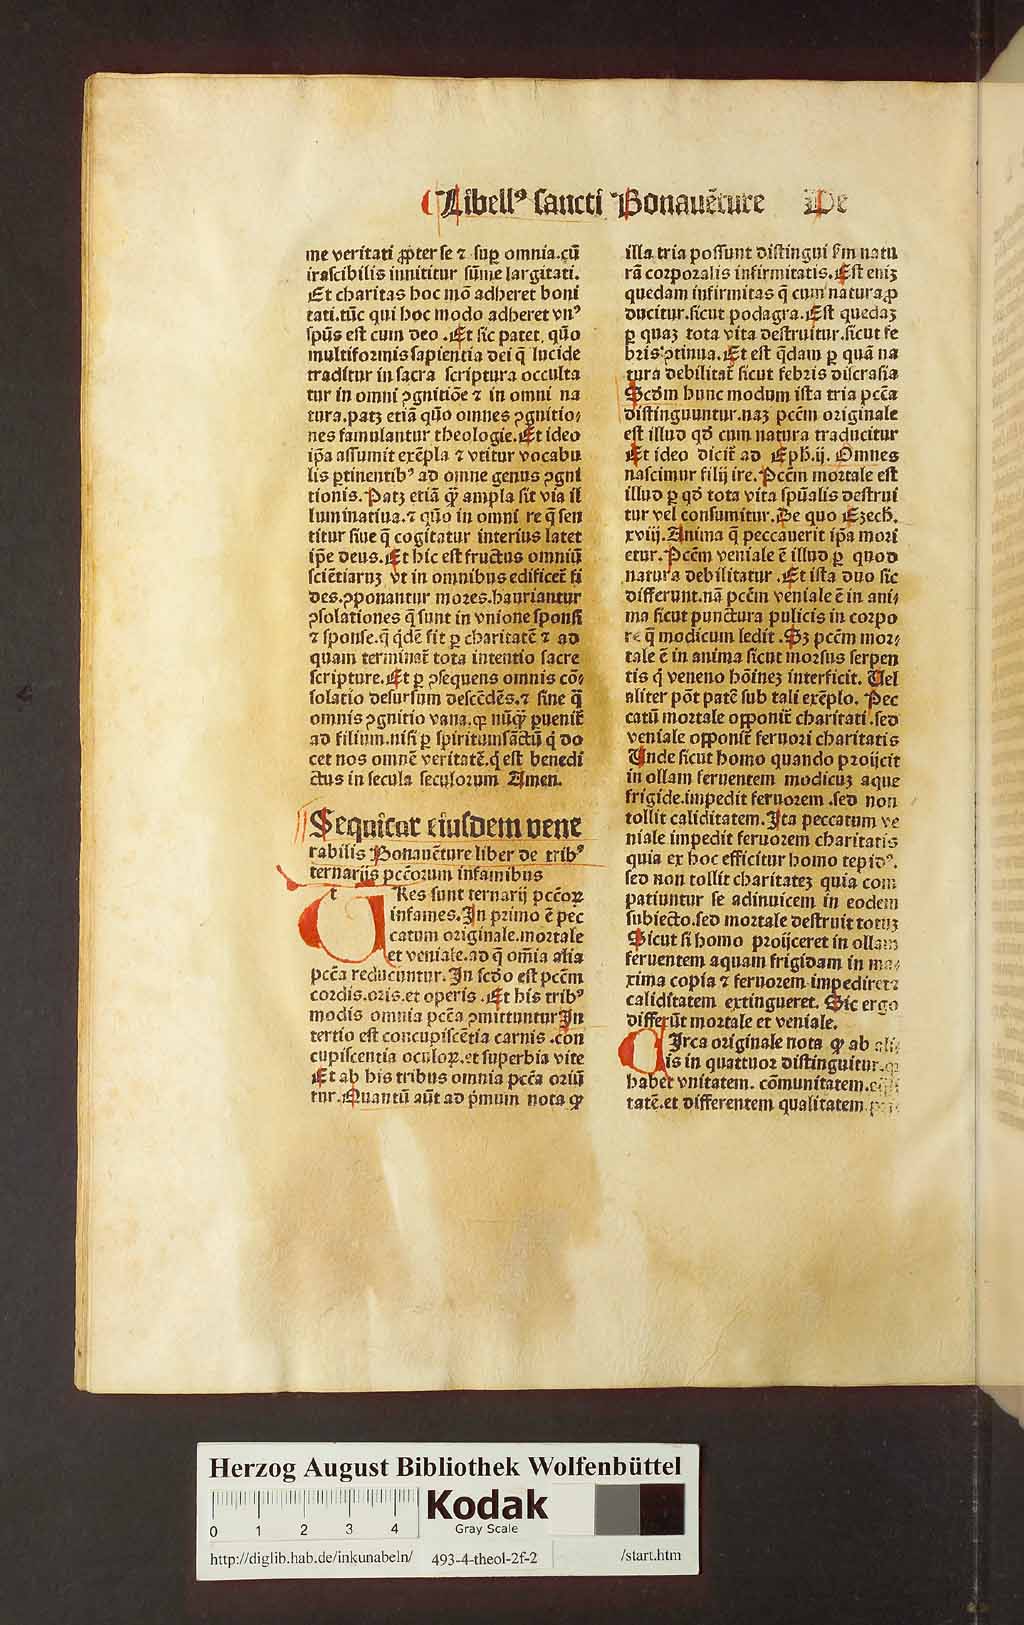 Libellꝰ sancti Bonauẽture De
me veritati ꝓpter se ⁊ suꝑ omnia.cũ
irascibilis innititur sũme largitati.
Et charitas hoc mõ adheret boni
tati.tũc qui hoc modo adheret vnꝰ
spũs est cum deo .Et sic patet, quõ
multiformis sapientia dei q̃ lucide
traditur in sacra scriptura occulta
tur in omni ꝯgnitiõe ⁊ in omni na
tura.patꝫ etiã quõ omnes ꝯgnitio⸗
nes famulantur theologie.Et ideo
ip̃a assumit exẽpla ⁊ vtitur vocabu
lis ꝑtinentibꝰ ad omne genus ꝯgni
tionis.Patꝫ etiã qꝙ̃ ampla sit via il
luminatiua.⁊ quõ in omni re q̃ sen
titur siue q̃ cogitatur interius latet
ip̃e deus.Et hic est fructus omniũ
sciẽtiaruꝫ vt in omnibus edificet̃ fi
des.ꝯponantur mores.hauriantur
ꝯsolationes q̃ sunt in vnione sponsi
⁊ sponse.q̃ qdẽ fit ꝑ charitatẽ ⁊ ad
quam terminat̃ tota intentio sacre
scripture.Et ꝑ ꝯsequens omnis cõ⸗
solatio desursum descẽdẽs.⁊ sine q̃
omnis ꝯgnitio vana.qꝛ nũqꝙ̃ ꝑuenit̃
ad filium.nisi ꝑ spiritumsãctũ q̃ do
cet nos omnẽ veritatẽ.q̃ est benedi
ctus in secula seculorum Amen.
Sequitur eiusdem vene
rabilis Bonauẽture liber de tribꝰ
ternarijs pctõrum infamibus
t
TRes sunt ternarij pctõꝝ
infames.In primo ẽ pec
catum originale.mortale
et veniale.ad q̃ om̃ia alia
pctã reducuntur.In scd̃o est pctm̃
cordis.oris.et operis .Et his tribꝰ
modis omnia pctã ꝯmittuntur In
tertio est concupiscẽtia carnis .con
cupiscentia oculoꝝ.et superbia vite
Et ab his tribus omnia pctã oriũ
tur.Quantũ aũt ad pͥmum nota ꝙ
illa tria possunt distingui sm̃ natu
rã corporalis infirmitatis.Est enīꝫ
quedam infirmitas q̃ cum natura ꝓ
ducitur.sicut podagra.Est quedaꝫ
ꝑ quaꝫ tota vita destruitur.sicut fe
bris ꝯtinua.Et est q̃dam ꝑ quã na
tura debilitat̃ sicut febris discrasia
Scd̃m hunc modum ista tria pctã
distinguuntur.naꝫ pctm̃ originale
est illud qd̃ cum natura traducitur
Et ideo dicit̃ ad Eph.ij. Omnes
nascimur filij ire.Pctm̃ mortale est
illud ꝑ qd̃ tota vita spũalis destrui
tur vel consumitur.De quo Ezech.
xviij.Anima q̃ peccauerit ip̃a mori
etur.Pctm̃ veniale ẽ illud ꝑ quod
natura debilitatur .Et ista duo sic
differunt.nã pctm̃ veniale ẽ in ani⸗
ma sicut punctura pulicis in corpo
re q̃ modicum ledit .Sꝫ pctm̃ mor⸗
tale ẽ in anima sicut morsus serpen
tis q̃ veneno hoĩnez interficit. Uel
aliter põt patẽ sub tali exẽplo. Pec
catũ mortale opponit̃ charitati .sed
veniale opponit̃ feruori charitatis
Unde sicut homo quando proijcit
in ollam feruentem modicuꝫ aque
frigide.impedit feruorem .sed non
tollit caliditatem.Ita peccatum ve
niale impedit feruorem charitatis
quia ex hoc efficitur homo tepidꝰ.
sed non tollit charitateꝫ quia com
patiuntur se adinuicem in eodem
subiecto.sed mortale destruit totuꝫ
Sicut si homo proijceret in ollam
feruentem aquam frigidam in ma⸗
xima copia ⁊ feruorem impediret ⁊
caliditatem extingueret. Sic ergo
differũt mortale et veniale.
CIrca originale nota ꝙ ab ali⸗
is in quattuor distinguitur.qꝛ
habet vnitatem. cõmunitatem.
tatẽ.et differentem qualitatem
Herzog August Bibliothek Wolfenbüttel
0 1 2 3 4
Kodak
Gray Scale
http://diglib.hab.de/inkunabeln/ 493-4-theol-2f-2 /start.htm